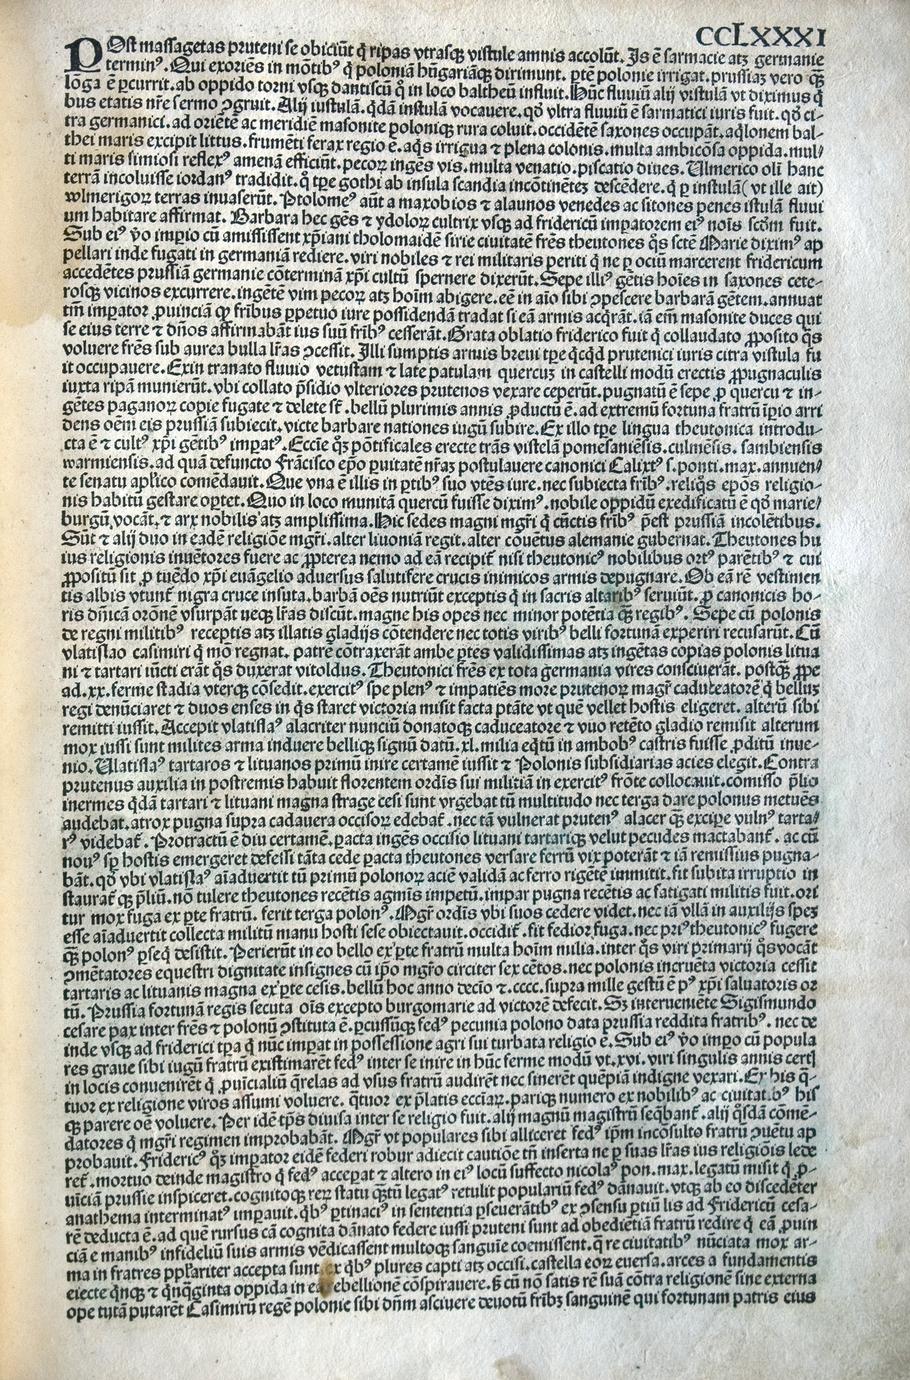 CCLXXXI
POst massagetas pruteni se obiciũt q̃ ripas vtrasqȝ vistule amnis accolũt. Is ẽ sarmacie atȝ germanie
terminꝰ. Qui exoriẽs in mõtibꝰ q̃ poloniã hũgariãqȝ dirimunt. ꝑtẽ polonie irrigat. prussiaȝ vero qȝ
lõga ẽ ꝑcurrit. ab oppido torni vsqȝ dantiscũ q̃ in loco baltheũ influit. Hũc fluuiũ alij vistulã vt diximus q̃
bus etatis nr̃e sermo ꝯgruit. Alij iustulã. q̃dã instulã vocauere. qõ vltra fluuiũ ẽ sarmatici iuris fuit. qõ ci-
tra germanici. ad oriẽtẽ ac meridiẽ masonite poloniqȝ rura coluit. occidẽtẽ saxones occupãt. aq̃lonem bal-
thei maris excipit littus. frumẽti ferax regio ẽ. aq̃s irrigua ⁊ plena colonis. multa ambicõsa oppida. mul/
ti maris sinuosi reflexꝰ amenã efficiũt. pecoꝝ ingẽs vis. multa venatio. piscatio diues. Ulmerico olĩ hanc
terrã incoluisse iordanꝰ tradidit. q̃ tp̃e gothi ab insula scandia incõtinẽteȝ descẽdere. q̃ ꝑ instulã( vt ille ait)
wlmerigoꝝ terras inuaserũt. Ptolomeꝰ aũt a maxobios ⁊ alaunos venedes ac sitones penes istulã fluui
um habitare affirmat. Barbara hec gẽs ⁊ ydoloꝝ cultrix vsqȝ ad fridericũ imꝑatorem eiꝰ noĩs scðm fuit.
Sub eiꝰ ṽo imꝑio cũ amississent xp̃iani tholomaidẽ sirie ciuitatẽ frẽs theutones q̃s sctẽ Marie diximꝰ ap
pellari inde fugati in germaniã rediere. viri nobiles ⁊ rei militaris periti q̃ ne ꝑ ociũ marcerent fridericum
accedẽtes prussiã germanie cõterminã xp̃i cultũ spernere dixerũt. Sepe illiꝰ gẽtis hoĩes in saxones cete-
rosqȝ vicinos excurrere. ingẽtẽ vim pecoꝝ atȝ hoĩm abigere. eẽ in aĩo sibi ꝯpescere barbarã gẽtem. annuat
tm̃ imꝑator ꝓuinciã qȝ fr̃ibus ꝑpetuo iure possidendã tradat si eã armis acq̃rãt. iã em̃ masonite duces qui
se eius terre ⁊ dños affirmabãt ius suũ fr̃ibꝰ cesserãt. Grata oblatio friderico fuit q̃ collaudato ꝓposito q̃s
voluere frẽs sub aurea bulla lr̃as ꝯcessit. Illi sumptis armis breui tp̃e qc̃qd̃ prutenici iuris citra vistula fu
it occupauere. Exin tranato fluuio vetustam ⁊ late patulam quercuȝ in castelli modũ erectis ꝓpugnaculis
iuxta ripã munierũt. vbi collato p̃sidio vlteriores prutenos vexare ceperũt. pugnatũ ẽ sepe ꝓ quercu ⁊ in-
gẽtes paganoꝝ copie fugate ⁊ delete sũt. bellũ plurimis annis ꝓductũ ẽ. ad extremũ fortuna fratrũ ĩꝑio arri
dens oẽm eis prussiã subiecit. victe barbare nationes iugũ subire. Ex illo tp̃e lingua theutonica introdu-
cta ẽ ⁊ cultꝰ xp̃i gẽtibꝰ imꝑatꝰ. Ecciẽ qȝ põtificales erecte trãs vistelã pomesaniẽsis. culmẽsis. sambiensis
warmiensis. ad quã defuncto Frãcisco ep̃o ꝑuitatẽ nr̃aȝ postulauere canonici Calixtꝰ s. ponti. max. annuen/
te senatu apl̃ico comẽdauit. Que vna ẽ illis in ꝑtibꝰ suo vtẽs iure. nec subiecta fr̃ibꝰ. reliq̃s epõs religio-
nis habitũ gestare oꝑtet. Quo in loco munitã quercũ fuisse diximꝰ. nobile oppidũ exedificatũ ẽ qõ marie/
burgũ vocãt. ⁊ arx nobilis atȝ amplissima. Hic sedes magni mgr̃i q̃ cũctis fr̃ibꝰ p̃est prussiã incolẽtibus.
Sũt ⁊ alij duo in eadẽ religiõe mgr̃i. alter liuoniã regit. alter cõuẽtus alemanie gubernat. Theutones hu
ius religionis inuẽtores fuere ac ꝓpterea nemo ad eã recipit᷑ nisi theutonicꝰ nobilibus ortꝰ parẽtibꝰ ⁊ cui
ꝓpositũ sit ꝓ tuẽdo xp̃i euãgelio aduersus salutifere crucis inimicos armis depugnare. Ob eã rẽ vestimen
tis albis vtunt᷑ nigra cruce insuta. barbã oẽs nutriũt exceptis q̃ in sacris altaribꝰ seruiũt. ꝓ canonicis ho-
ris dñicã orõnẽ vsurpãt neqȝ lr̃as discũt. magne his opes nec minor potẽtia qȝ regibꝰ. Sepe cũ polonis
de regni militibꝰ receptis atȝ illatis gladijs cõtendere nec totis viribꝰ belli fortunã experiri recusarũt. Cũ
vlatislao casimiri q̃ mõ regnat. patrẽ cõtraxerãt ambe ꝑtes validissimas atȝ ingẽtas copias polonis litua
ni ⁊ tartari iũcti erãt q̃s duxerat vitoldus. Theutonici frẽs ex tota germania vires consciuerãt. postqȝ ꝓpe
ad .xx. ferme stadia vterqȝ cõsedit. exercitꝰ spe plenꝰ ⁊ impatiẽs more prutenoꝝ magr̃ caduceatorẽ q̃ belluȝ
regi denũciaret ⁊ duos enses in q̃s staret victoria misit facta ptãte vt quẽ vellet hostis eligeret. alterũ sibi
remitti iussit. Accepit vlatislaꝰ alacriter nunciũ donatoqȝ caduceatore ⁊ vno retẽto gladio remisit alterum
mox iussi sunt milites arma induere belliqȝ signũ datũ. xl. milia eq̃tũ in ambobꝰ castris fuisse ꝓditũ inue-
nio. Ulatislaꝰ tartaros ⁊ lituanos primũ inire certamẽ iussit ⁊ Polonis subsidiarias acies elegit. Contra
prutenus auxilia in postremis habuit florentem ordĩs sui militiã in exercitꝰ frõte collocauit. cõmisso p̃lio
inermes q̃dã tartari ⁊ lituani magna strage cesi sunt vrgebat tñ multitudo nec terga dare polonus metuẽs
audebat. atrox pugna supra cadauera occisoꝝ edebat᷑. nec tã vulnerat prutenꝰ alacer qȝ excipe vulnꝰ tarta/
rꝰ videbat᷑. Protractũ ẽ diu certamẽ. ꝑacta ingẽs occisio lituani tartariqȝ velut pecudes mactabant᷑. ac cũ
nouꝰ sꝑ hostis emergeret defessi tãta cede ꝑacta theutones versare ferrũ vix poterãt ⁊ iã remissius pugna-
bãt. qõ vbi vlatislaꝰ aĩaduertit tũ primũ polonoꝝ aciẽ validã ac ferro rigẽtẽ immitit. fit subita irruptio in
staurat᷑ qȝ p̃liũ. nõ tulere theutones recẽtis agmĩs impetũ. impar pugna recẽtis ac fatigati militis fuit. ori
tur mox fuga ex ꝑte fratrũ. ferit terga polonꝰ. Mgr̃ ordĩs vbi suos cedere videt. nec iã vllã in auxilijs speȝ
esse aĩaduertit collecta militũ manu hosti sese obiectauit. occidit᷑. fit fedior fuga. nec priꝰ theutonicꝰ fugere
qȝ polonꝰ ꝑseq̃ desistit. Perierũt in eo bello ex ꝑte fratrũ multa hoĩm milia. inter q̃s viri primarij q̃s vocãt
ꝯmẽtatores equestri dignitate insignes cũ ip̃o mgr̃o circiter sex cẽtos. nec polonis incruẽta victoria cessit
tartaris ac lituanis magna ex ꝑte cesis. bellũ hoc anno decĩo ⁊. cccc. supra mille gestũ ẽ pꝰ xp̃i saluatoris or
tũ. Prussia fortunam regis secuta oĩs excepto burgomarie ad victorẽ defecit. Sȝ interueniẽte Sigismundo
cesare pax inter frẽs ⁊ polonũ ꝯstituta ẽ. ꝑcussũqȝ fedꝰ pecunia polono data prussia reddita fratribꝰ. nec de
inde vsqȝ ad friderici tp̃a q̃ nũc imꝑat in possessione agri sui turbata religio ẽ. Sub eiꝰ ṽo imꝑo cũ popula
res graue sibi iugũ fratrũ existimarẽt fedꝰ inter se inire in hũc ferme modũ vt. xvi. viri singulis annis certȷ
in locis conuenirẽt q̃ ꝓuĩcialiũ q̃relas ad vsus fratrũ audirẽt nec sinerẽt quẽpiã indigne vexari. Ex his q̃-
tuor ex religione viros assumi voluere. q̃tuor ex p̃latis ecciaꝝ. pariqȝ numero ex nobilibꝰ ac ciuitat.bꝰ his
qȝ parere oẽ voluere. Per idẽ tp̃s diuisa inter se religio fuit. alij magnũ magistrũ seq̃bant᷑. alij q̃sdã cõmẽ-
datores q̃ mgr̃i regimen improbabãt. Mgr̃ vt populares sibi alliceret fedꝰ ip̃m incõsulto fratrũ ꝯuẽtu ap
probauit. Fridericꝰ qȝ imꝑator eidẽ federi robur adiecit cautiõe tñ inserta ne ꝑ suas lr̃as ius religiõis lede
ret᷑. mortuo deinde magistro q̃ fedꝰ acceꝑat ⁊ altero in eiꝰ locũ suffecto nicolaꝰ pon. max. legatũ misit q̃ ꝓ-
uĩciã prussie inspiceret. cognitoqȝ reꝝ statu qȝtũ legatꝰ retulit populariũ fedꝰ dãnauit. vtqȝ ab eo discedẽter
anathema interminatꝰ imꝑauit. q̃bꝰ ꝑtinaciꝰ in sententia ꝑseuerãtibꝰ ex ꝯsensu ꝑtiũ lis ad Fridericũ cesa-
rẽ deducta ẽ. ad quẽ rursus cã cognita dãnato federe iussi pruteni sunt ad obediẽtiã fratrũ redire q̃ eã ꝓuin
ciã e manibꝰ infideliũ suis armis vẽdicassent multoqȝ sanguĩe coemissent. q̃ re ciuitatibꝰ nũciata mox ar-
ma in fratres pp̃lariter accepta sunt ex q̃bꝰ plures capti atȝ occisi. castella eoꝝ euersa. arces a fundamentis
eiecte q̃nqȝ ⁊ q̃nq̃ginta oppida in eã rebellionẽ cõspirauere. sȝ cũ nõ satis rẽ suã cõtra religionẽ sine externa
ope tutã putarẽt Casimirũ regẽ polonie sibi dñm asciuere deuotũ fr̃ibȝ sanguinẽ qui fortunam patris eius